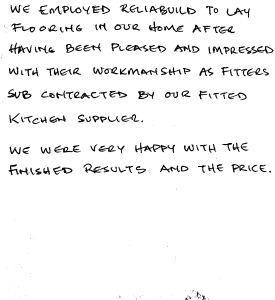 WE EMPLOYED RELIABUILD TO LAY
FLOORING IN OUR HOME AFTER
HAVING BEEN PLEASED AND IMPRESSED
WITH THEIR WORKMANSHIP AS FITTERS
SUB CONTRACTED BY OUR FITTED
KITCHEN SUPPLIER.
WE WERE VERY HAPPY WITH THE
FINISHED RESULTS AND THE PRICE.